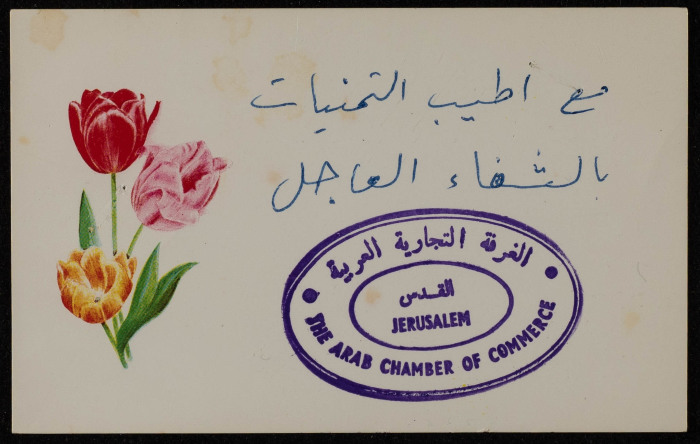 مع اطيب التمنيات
بالشفاء العاجل
الغرفة التجارية العربية
القدس
JERUSALEM
THE ARAB CHAMBER OF COMMERCE